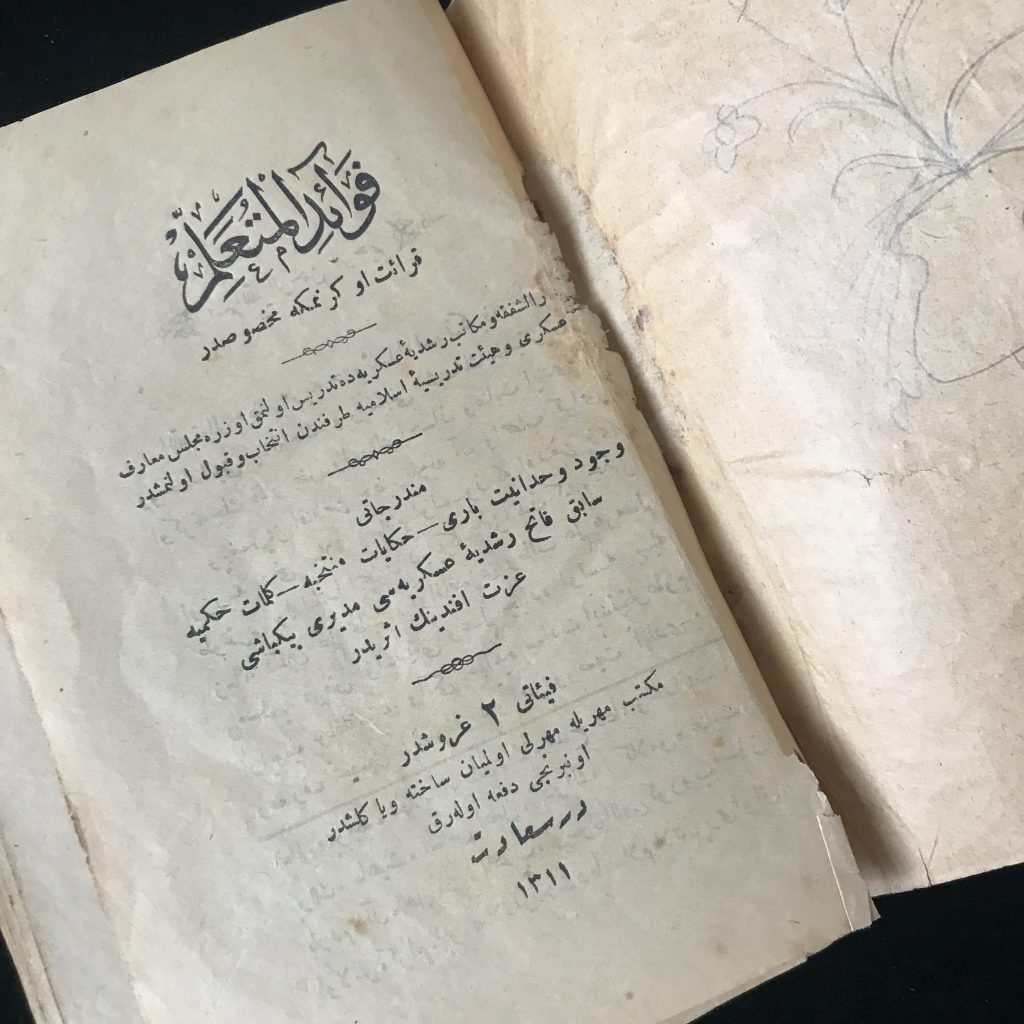 فوائد المتعلم
قرائت اوكرنمكه مخصوصدر
دارالشفقه و مكاتب رشديهٔ عسكريه ده تدريس اولنمق اوزره مجلس معارف
عسكرى و هيئت تدريسيهٔ اسلاميه طرفندن انتخاب و قبول اولنمشدر
مندرجاتى
وجود وحدانيت بارى – حكايات منتخبه – كلمات حكميه
سابق فاتح رشديهٔ عسكريه سى مديرى بيكباشى
عزت افندينك اثريدر
فيئاتى ٢ غروشدر
مكتب مهريله مهرلى اولميان ساخته ويا كلشدر
اونبرنجى دفعه اوله رق
درسعادت
١٣١١